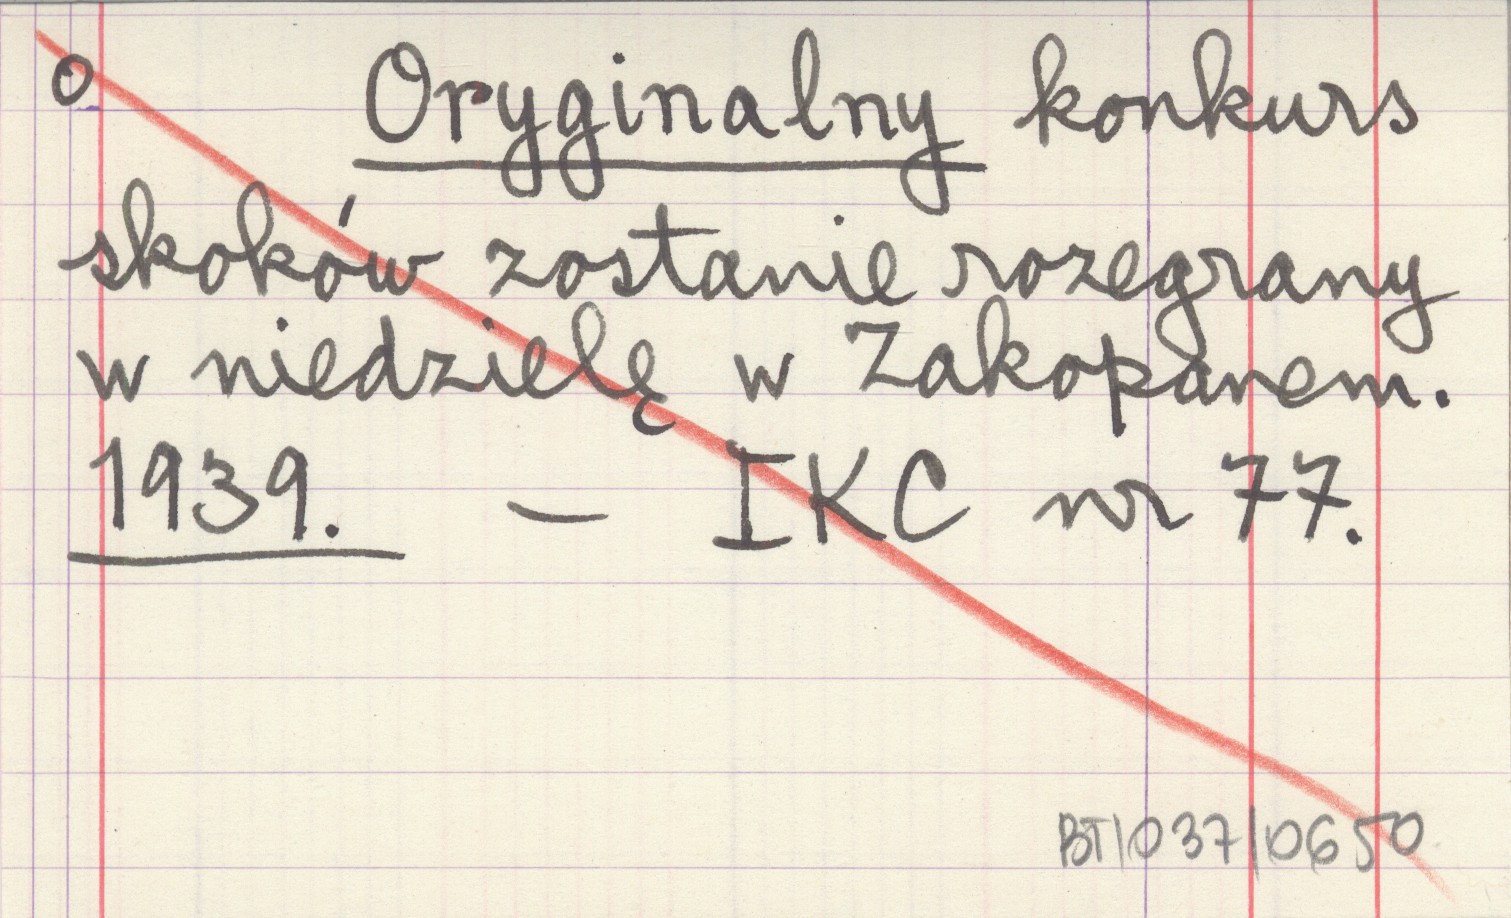 O Oryginalny konkurs
skoków zostanie rozegrany
w niedzielę w Zakopanem.
1939. — IKC nr 77.
BT/037/0650